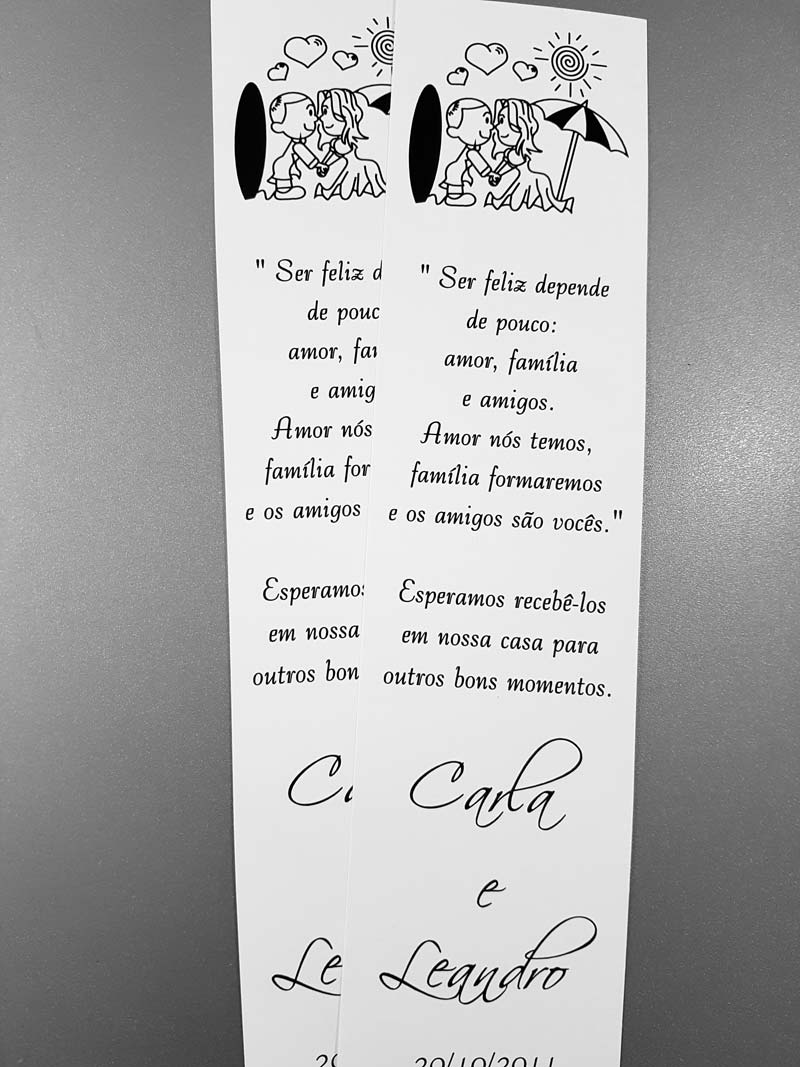 " Ser feliz d
de pouc
amor, fa
e amig
Amor nós
família for
e os amigos
Esperamos
em nossa
outros bon
Ca
Le
" Ser feliz depende
de pouco:
amor, família
e amigos.
Amor nós temos,
família formaremos
e os amigos são vocês."
Esperamos recebê-los
em nossa casa para
outros bons momentos.
Carla
e
Leandro
29/10/2011